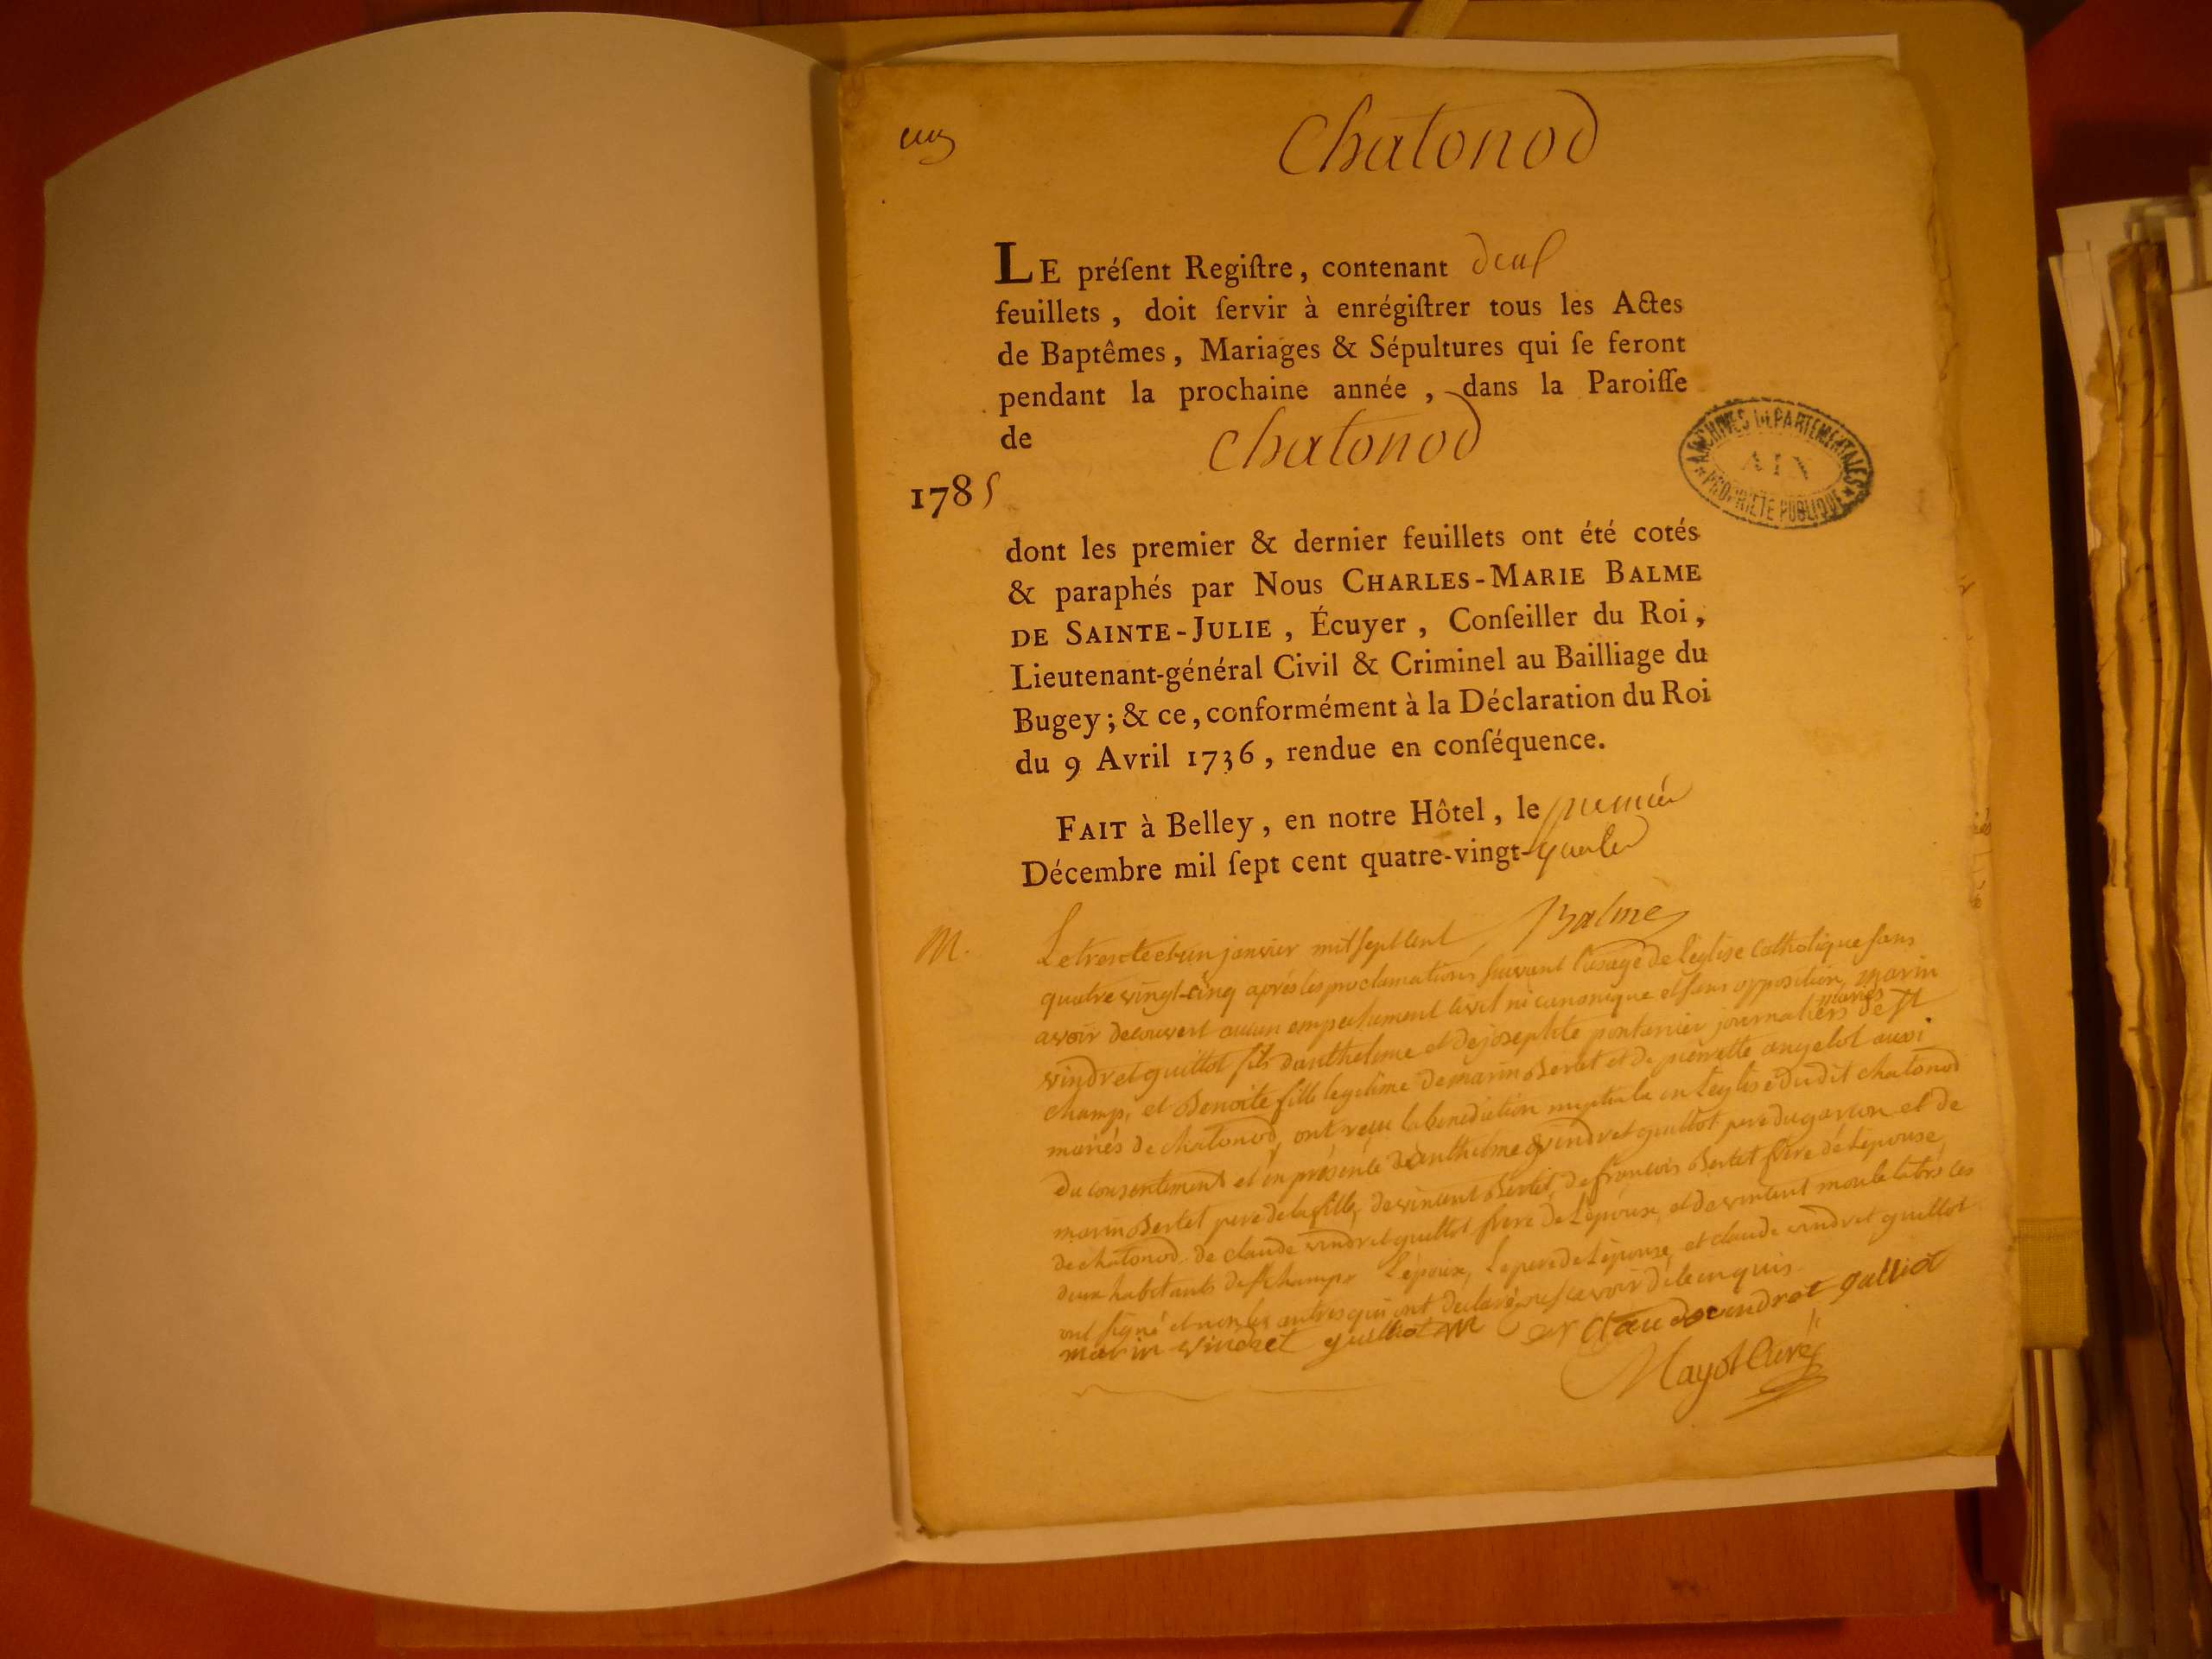 Chatonod
LE préſent Regiſtre, contenant deux
feuillets, doit ſervir à enrégiſtrer tous les Actes
de Baptêmes, Mariages & Sépultures qui ſe feront
pendant la prochaine année, dans la Paroiſſe
de Chatonod
1785
ARCHIVES DÉPARTEMENTALES
AIN
PROPRIÉTÉ PUBLIQUE
dont les premier & dernier feuillets ont été cotés
& paraphés par Nous CHARLES-MARIE BALME
DE SAINTE-JULIE, Écuyer, Conſeiller du Roi,
Lieutenant-général Civil & Criminel au Bailliage du
Bugey; & ce, conformément à la Déclaration du Roi
du 9 Avril 1736, rendue en conſéquence.
FAIT à Belley, en notre Hôtel, le premier
Décembre mil ſept cent quatre-vingt-quatre
Balme
M. Le trente et un janvier mil sept cent
quatre vingt-cinq après les proclamations suivant l'usage de l'eglise catholique sans
avoir decouvert aucun empechement civil ni canonique et sans opposition, marin
vindret guillot fils d'anthelme et de josephte pontanier journaliers mariés de St
champ, et Benoite fille legitime de marin Bertet et de pierrette angelot aussi
mariés de chatonod, ont reçu la benediction nuptiale en l'eglise dudit chatonod
du consentement et en présence d'anthelme vindret guillot pere du garcon et de
marin Bertet pere de la fille, de vincent Bertet, de francois Bertet frere de l'epouse,
de chatonod. de claude vindret guillot frere de l'epoux, et de vincent les
deux habitants de St champ. L'epoux, le pere de l'epouse, et claude vindret guillot
ont signé et non les autres qui ont declaré ne scavoir de ce enquis.
marin vindret guilliot claude vendret galliot
Mayot Curé